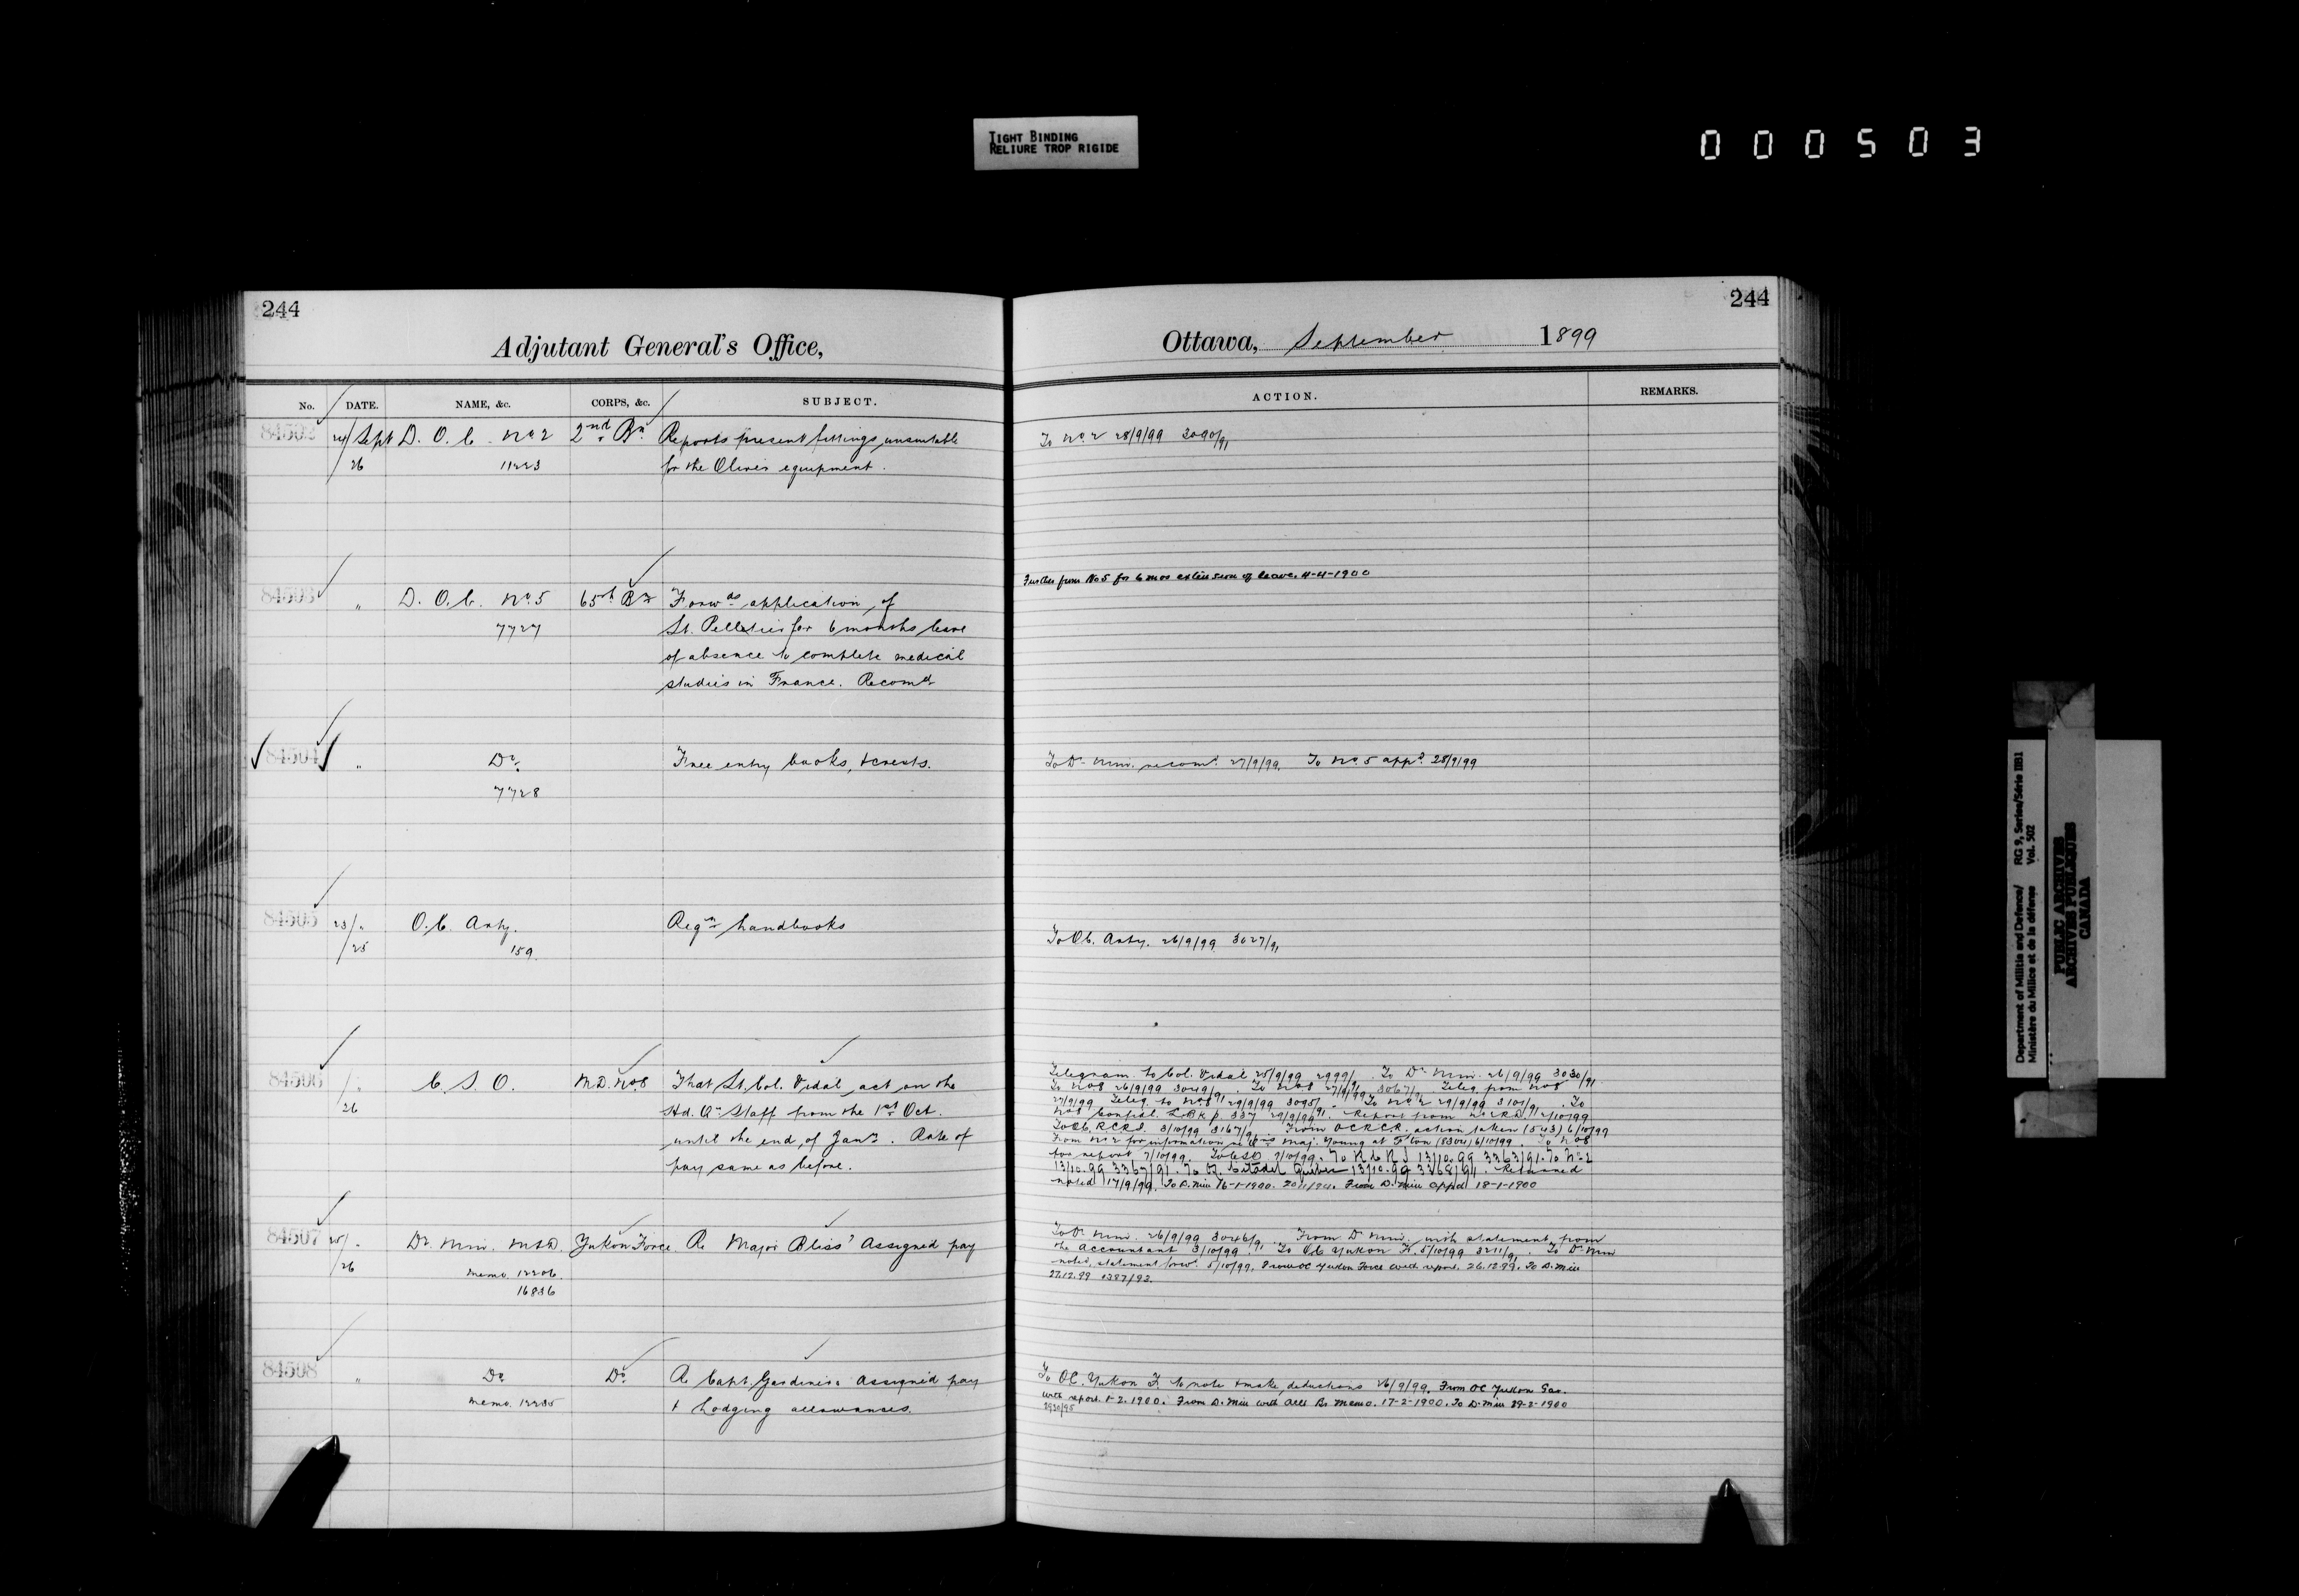 TIGHT BINDING
RELIURE TROP RIGIDE
000503
244
Adjutant General's Office,
No. DATE. NAME, &c. CORPS, &c. SUBJECT.
84502 24/Sept D. O. C. No 2 2nd Bn Reports present fittings unsuitable
/26 11223 for the Oliver equipment.
84503 " D. O. C. No 5 65th Bn Forwds application of
7727 Lt. Pelletier for 6 months leave
of absence to complete medical
studies in France. Recomd
84504 " Do. Free entry books, & crests.
7728
84505 23/" O. C. Arty. Reqn handbooks
/25 159.
84506 /" C. S. O. M.D. No 8 That Lt. Col. Vidal act on the
/26 Hd. Qr Staff from the 1st Oct.
until the end of Jany. Rate of
pay same as before.
84507 25/" Dy. Min. M&D. Yukon Force. Re Major Bliss' Assigned pay
/26 Memo. 12206.
16836
84508 " Do Do Re Capt. Gardiner's Assigned pay
Memo. 12235 & Lodging allowances.
244
Ottawa, September 1899
ACTION. REMARKS.
To No 2 28/9/99 3090/91
Further from No 5 for 6 mos extension of leave. 4-4-1900
To Dy Min. recomd. 27/9/99. To No 5 appd. 28/9/99
To O.C. Arty. 26/9/99 3027/91
Telegram to Col. Vidal 25/9/99 2999/91. To Dy Min. 26/9/99 3030/91
To No 8 26/9/99 3049/91. To No 8 27/9/99 3067/91. Teleg from No 8
27/9/99 Teleg. to No 8 29/9/99 3095/91. To No 2 29/9/99 3101/91. To
No 8 Confid. L.Bk p. 337 29/9/99. Report from 2/10/99
To O.C. R.C.R.I. 3/10/99 3167/91. From O.C.R.C.R. action taken (543) 6/10/99
From No 2 for information Maj. Young at (8304) 6/10/99. To No 8
for report 7/10/99. To C.S.O 7/10/99. To R.C.R.I 13/10.99 3363/91. To No 2
13/10.99 3367/91. To Citadel Quebec 13/10.99 3368/91. Returned
noted 17/9/99. To D. Min 16-1-1900. From D. Min Appd 18-1-1900
To Dy Min. 26/9/99 3046/91. From Dy Min. with statement from
the Accountant 3/10/99. To O.C. Yukon F. 5/10/99 3211/91. To Dy Min
noted, statement forwd. 5/10/99. From OC Yukon Force with report. 26.12.99. To D. Min
27.12.99 1387/93.
To OC. Yukon F. to note & make deductions 26/9/99. From OC Yukon Gar.
with report. 1-2-1900. From D. Min with Memo. 17-2-1900. To D. Min 29-2-1900
2930/95
Department of Militia and Defence/
Ministère du Milice et de la défense
RG 9, Series/Série IIB1
Vol. 502
PUBLIC ARCHIVES
ARCHIVES PUBLIQUES
CANADA